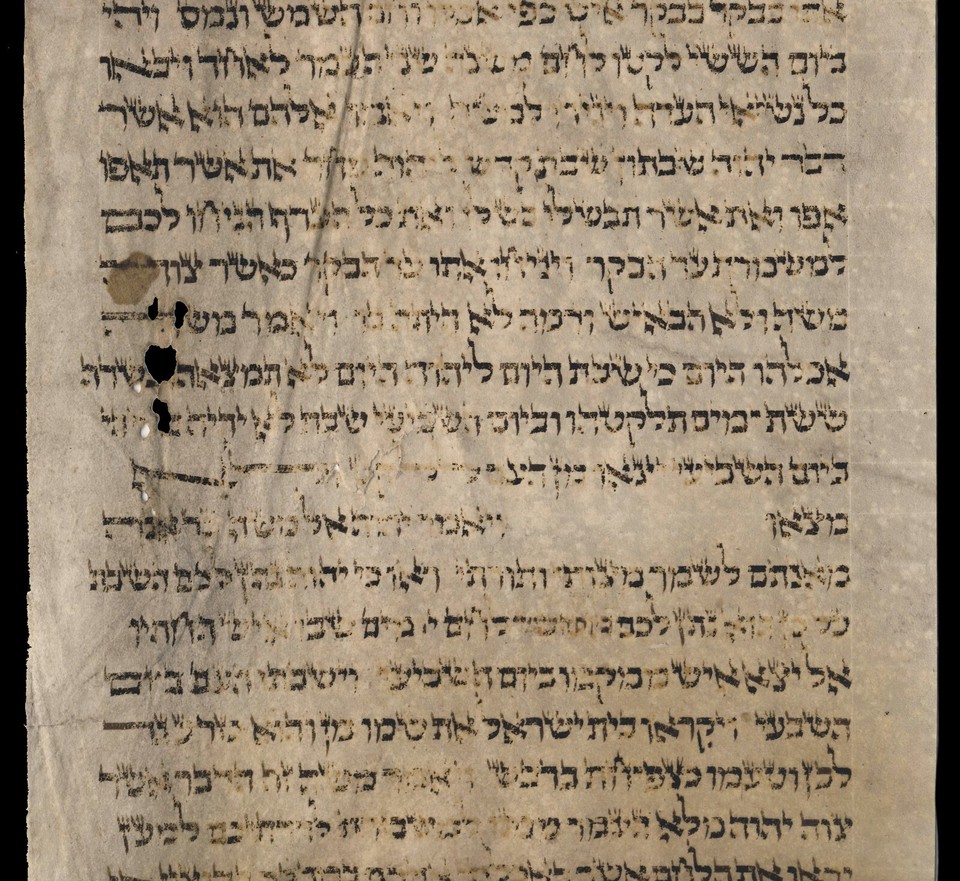 אתו בבקר בבקר איש כפי אכלו וחם השמש ונמס ויהי
ביום הששי לקטו לחם משנה שני העמר לאחד ויבאו
כל נשיאי העדה ויגידו למשה ויאמר אלהם הוא אשר
דבר יהוה שבתון שבת קדש ליהוה מחר את אשר תאפו
אפו ואת אשר תבשלו בשלו ואת כל העדף הניחו לכם
למשמרת עד הבקר ויניחו אתו עד הבקר כאשר צוה
משה ולא הבאיש ורמה לא היתה בו ויאמר משה
אכלהו היום כי שבת היום ליהוה היום לא תמצאהו בשדה
ששת ימים תלקטהו וביום השביעי שבת לא יהיה בו ויהי
ביום השביעי יצאו מן העם ללקט ולא
מצאו ויאמר יהוה אל משה עד אנה
מאנתם לשמר מצותי ותורתי ראו כי יהוה נתן לכם השבת
על כן הוא נתן לכם ביום הששי לחם יומים שבו איש תחתיו
אל יצא איש ממקמו ביום השביעי וישבתו העם ביום
השבעי ויקראו בית ישראל את שמו מן והוא כזרע גד
לבן וטעמו כצפיחת בדבש ויאמר משה זה הדבר אשר
צוה יהוה מלא העמר ממנו למשמרת לדרתיכם למען
יראו את הלחם אשר